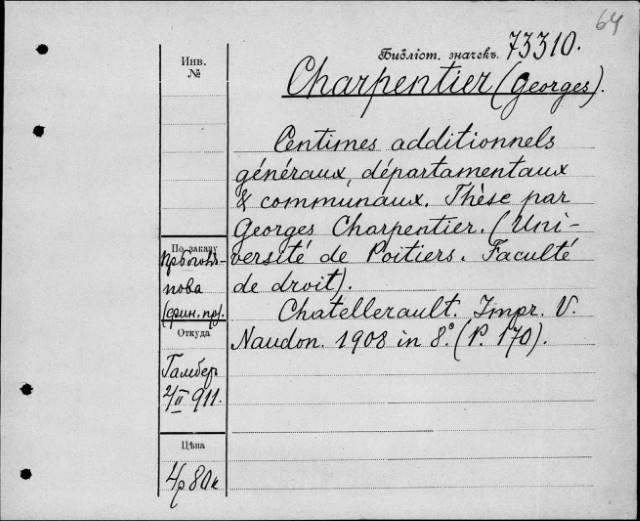 64
Библіот. значекъ. 73310.
Инв.
№
Charpentier (Georges).
Centimes additionnels
généraux, départamentaux
& communaux. Thèse par
Georges Charpentier. (Uni-
versité de Poitiers. Faculté
de droit).
Chatellerault. Impr. V.
Naudon. 1908 in 8°. (P. 170).
По заказу
пова
(фин. пр).
Откуда
Гамбер
2/II 911.
Цѣна
4р 80к